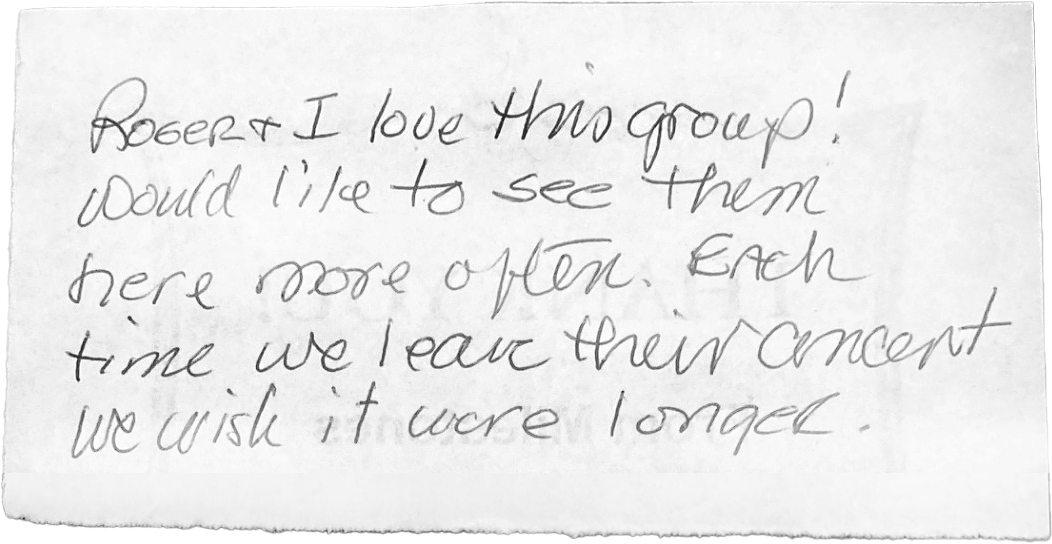 Roger + I love this group!
Would like to see them
here more often. Each
time we leave their concert
we wish it were longer.